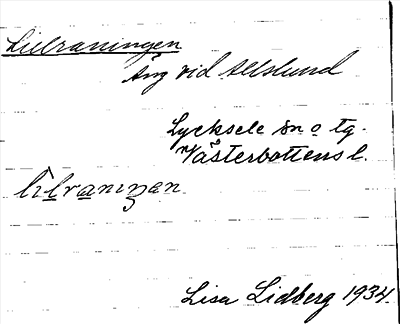 Lillraningen
Äng vid Alslund
Lycksele sn o tg.
Västerbottens l.
lilraniŋan
Lisa Lidberg 1934.